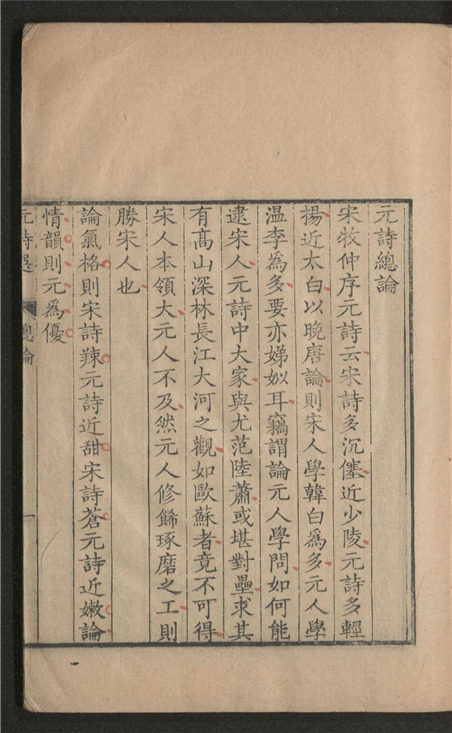 元詩總論
宋牧仲序元詩云宋詩多沉僿近少陵元詩多輕
揚近太白以晚唐論則宋人學韓白爲多元人學
温李爲多要亦娣姒耳竊謂論元人學問如何能
逮宋人元詩中大家與尤范陸蕭或堪對壘求其
有高山深林長江大河之觀如歐蘇者竟不可得
宋人本領大元人不及然元人修餙琢磨之工則
勝宋人也
論氣格則宋詩辣元詩近甜宋詩蒼元詩近嫩論
情韻則元爲優
元詩選 總論 一